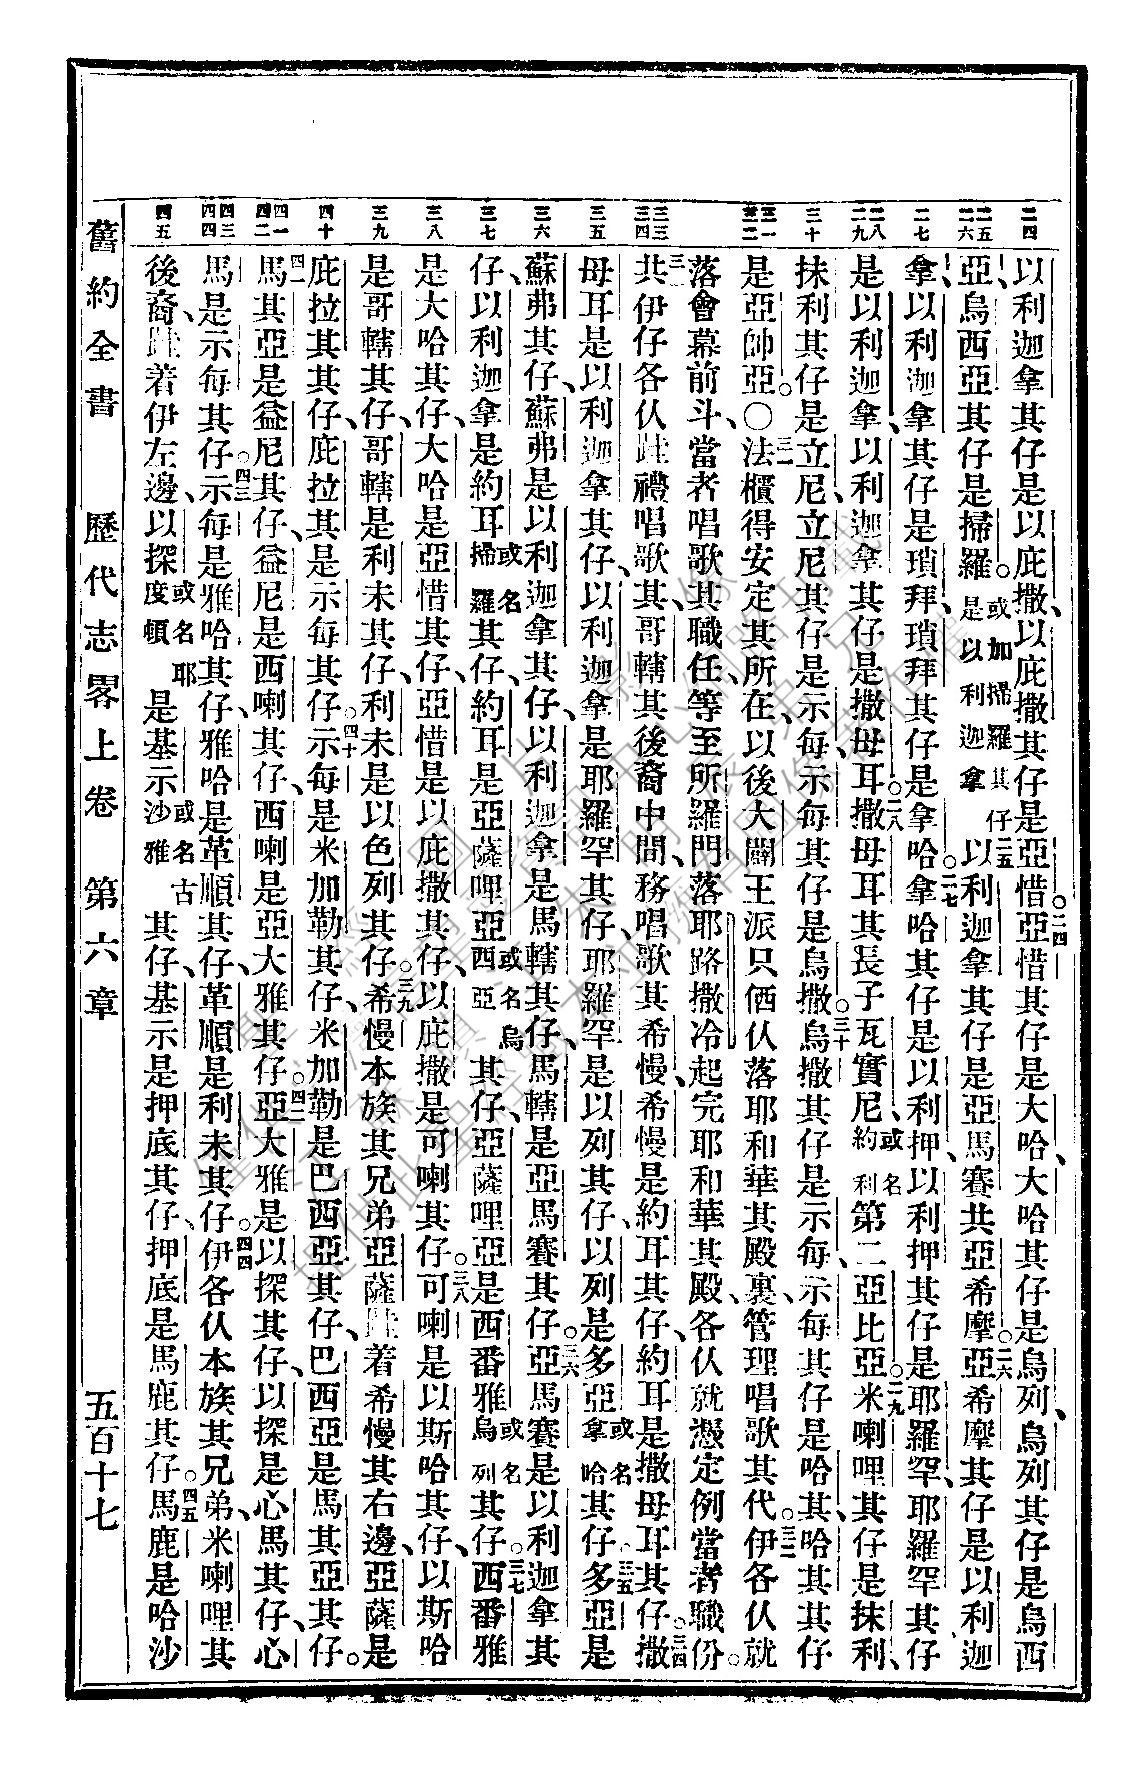 以利迦拿其仔是以庇撒、以庇撒其仔是亞惜、○二四亞惜其仔是大哈、大哈其仔是烏列、烏列其仔是烏西
亞、烏西亞其仔是掃羅。或加掃羅其仔是以利迦拿二五以利迦拿其仔是亞馬賽共亞希摩○二六亞希摩其仔是以利迦
拿、以利迦拿其仔是瑣拜、瑣拜其仔是拿哈○二七拿哈其仔是以利押、以利押其仔是耶羅罕、耶羅罕其仔
是以利迦拿、以利迦拿其仔是撒母耳○二八撒母耳其長子瓦實尼、或名約利第二亞比亞○二九米喇哩其仔是抹利、
抹利其仔是立尼、立尼其仔是示每、示每其仔是烏撒○三十烏撒其仔是示每、示每其仔是哈其、哈其其仔
是亞帥亞。○三一法櫃得安定其所在、以後大闢王派只仴伙落耶和華其殿裏、管理唱歌其代。三二伊各伙就
落會幕前斗、當者唱歌其職任、等至所羅門落耶路撒冷起完耶和華其殿、各伙就憑定例當者職份。○
三三共伊仔各伙跬禮唱歌其、哥轄其後裔中間、務唱歌其希慢、希慢是約耳其仔、約耳是撒母耳其仔。三四撒
母耳是以利迦拿其仔、以利迦拿是耶羅罕其仔、耶羅罕是以列其仔、以列是多亞或名拿哈其仔。三五多亞是
蘇弗其仔、蘇弗是以利迦拿其仔、以利迦拿是馬轄其仔、馬轄是亞馬賽其仔○三六亞馬賽是以利迦拿其
仔、以利迦拿是約耳或名掃羅其仔、約耳是亞薩哩亞或名烏西亞其仔、亞薩哩亞是西番雅或名烏列其仔。三七西番雅
是大哈其仔、大哈是亞惜其仔、亞惜是以庇撒其仔、以庇撒是可喇其仔○三八可喇是以斯哈其仔、以斯哈
是哥轄其仔、哥轄是利未其仔、利未是以色列其仔○三九希慢本族其兄弟亞薩跬着希慢其右邊、亞薩是
庇拉其其仔、庇拉其是示每其仔○四十示每是米加勒其仔、米加勒是巴西亞其仔、巴西亞是馬其亞其仔。
四一馬其亞是益尼其仔、益尼是西喇其仔、西喇是亞大雅其仔○四二亞大雅是以探其仔、以探是心馬其仔、心
馬是示每其仔○四三示每是雅哈其仔、雅哈是革順其仔、革順是利未其仔○四四伊各伙本族其兄弟、米喇哩其
後裔、跬着伊左邊、以探或名耶度頓是基示或名古沙雅其仔、基示是押底其仔、押底是馬鹿其仔。四五馬鹿是哈沙
二四
二五 二六
二七
二八 二九
三十
三一 三二
三三 三四
三五
三六
三七
三八
三九
四十
四一 四二
四三 四四
四五
舊約全書 歷代志畧上卷 第六章 五百十七